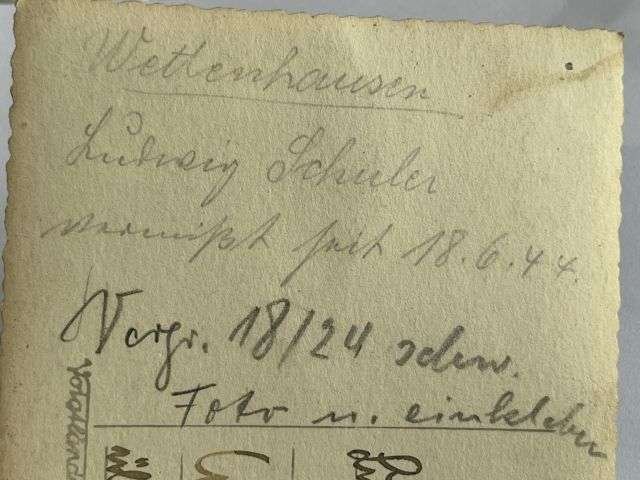 Wettenhausen
Ludwig Schuler
vermißt seit 18.6.44.
Vergr. 18/24 schw.
Foto u. einkleben